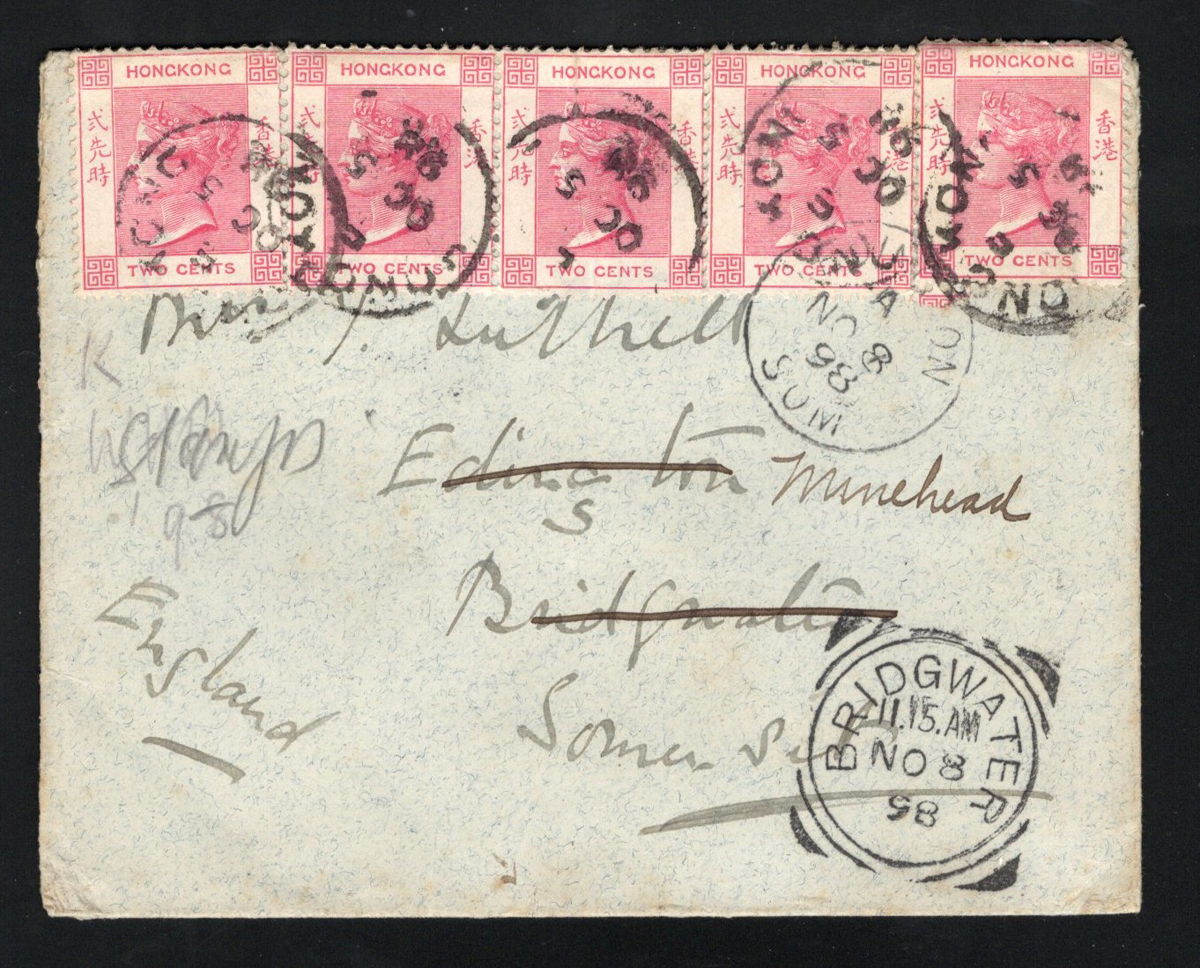 HONGKONG HONGKONG HONGKONG HONGKONG HONGKONG
弍先時 香港 弍先時 香港 弍先時 香港 弍先時 香港 弍先時 香港
TWO CENTS TWO CENTS TWO CENTS TWO CENTS TWO CENTS
HONG KONG
OC 5
98
Luttrell
NO 8
98
SOM
K
Stamps
Edington Minehead
S
Bridgwater
England
Somerset
BRIDGWATER
11.15.AM
NO 8
98